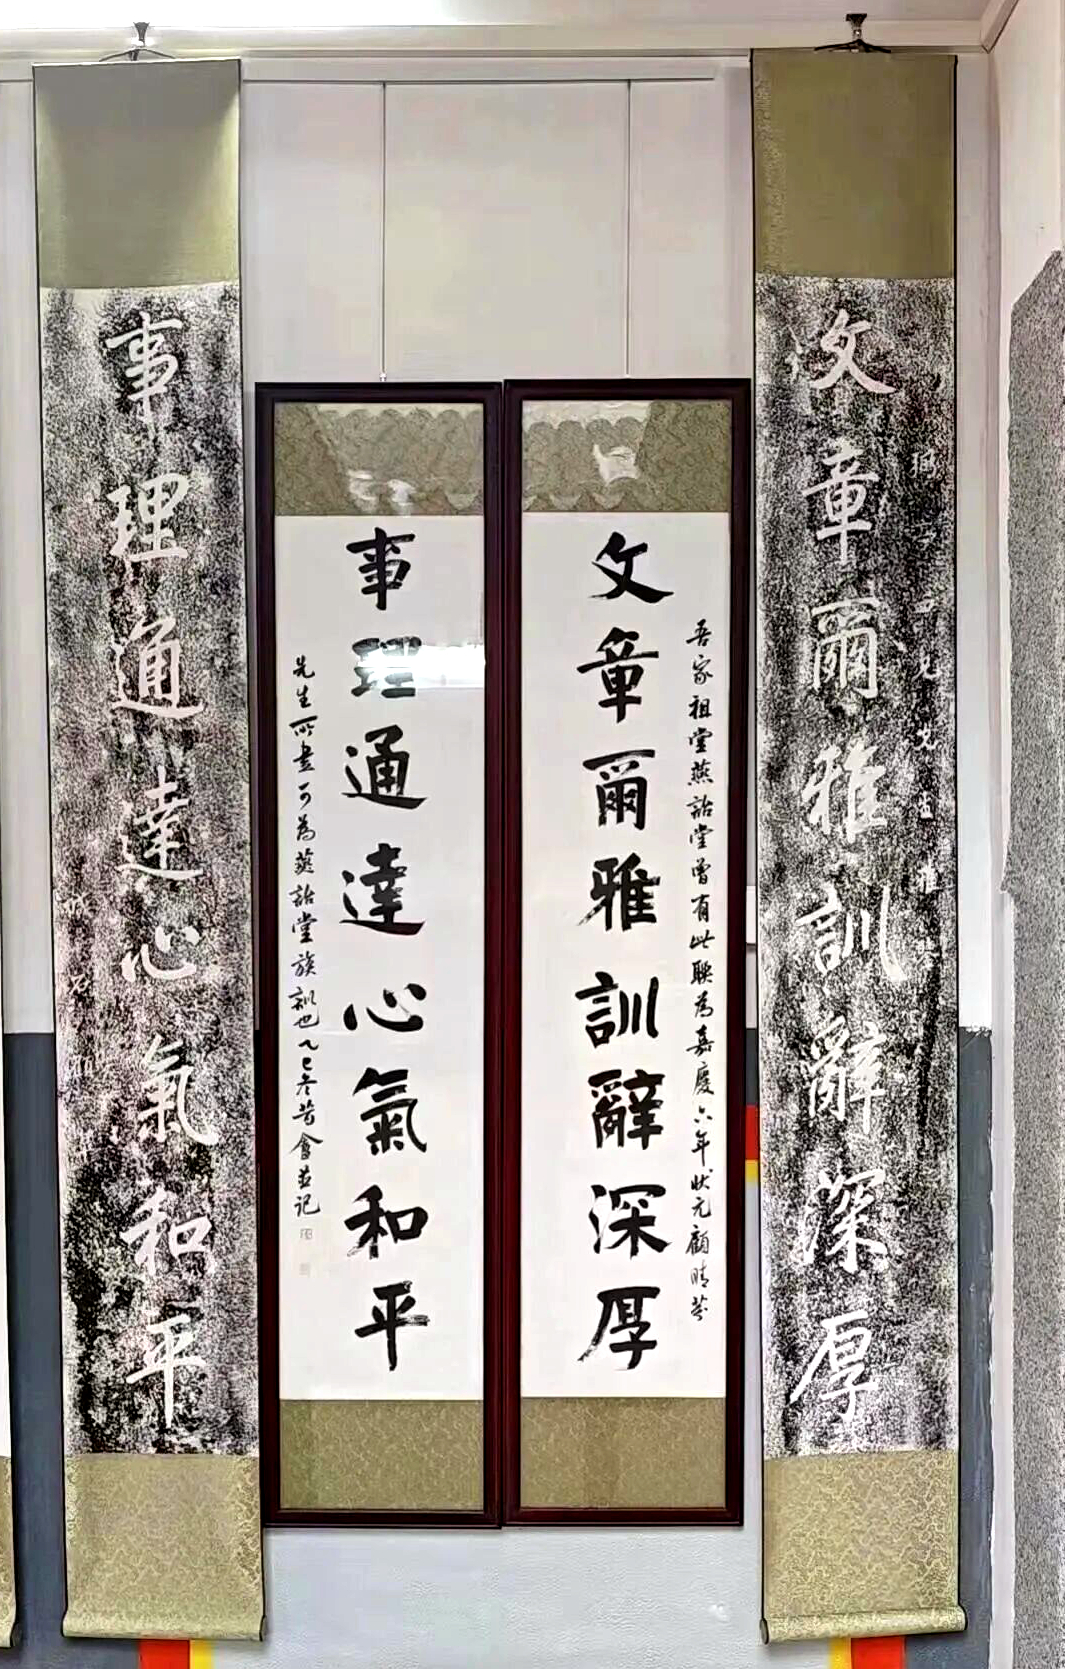 文章爾雅訓辭深厚
吾家祖堂燕詒堂曾有此聯為嘉慶六年狀元顧晴芬
文章爾雅訓辭深厚
事理通達心氣和平
先生所書可為燕詒堂族訓也乙巳冬昔會並記
事理通達心氣和平